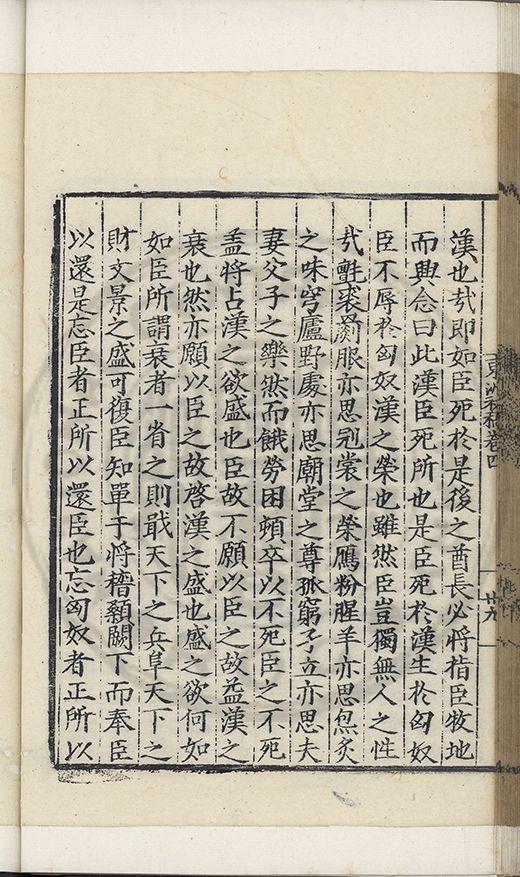 漢也㢤即如臣死於是後之酋長必將指臣牧地
而興念曰此漢臣死所也是臣死扵漢生扵匈奴
臣不辱扵匈奴漢之榮也雖然臣豈獨無人之性
㢤氊裘罽服亦思冠裳之榮鴈粉腥羊亦思炰炙
之味穹廬野處亦思朝堂之尊孤窮孑立亦思夫
妻父子之樂然而餓勞困頓卒以不死臣之不死
盖將占漢之欲盛也臣故不願以臣之故益漢之
衰也然亦願以臣之故啓漢之盛也盛之欲何如
如臣所謂衰者一省之則戢天下之兵阜天下之
財文景之盛可復臣知單于將稽顙闕下而奉臣
以還是忘臣者正所以還臣也忘匈奴者正所以
卷四
廿九